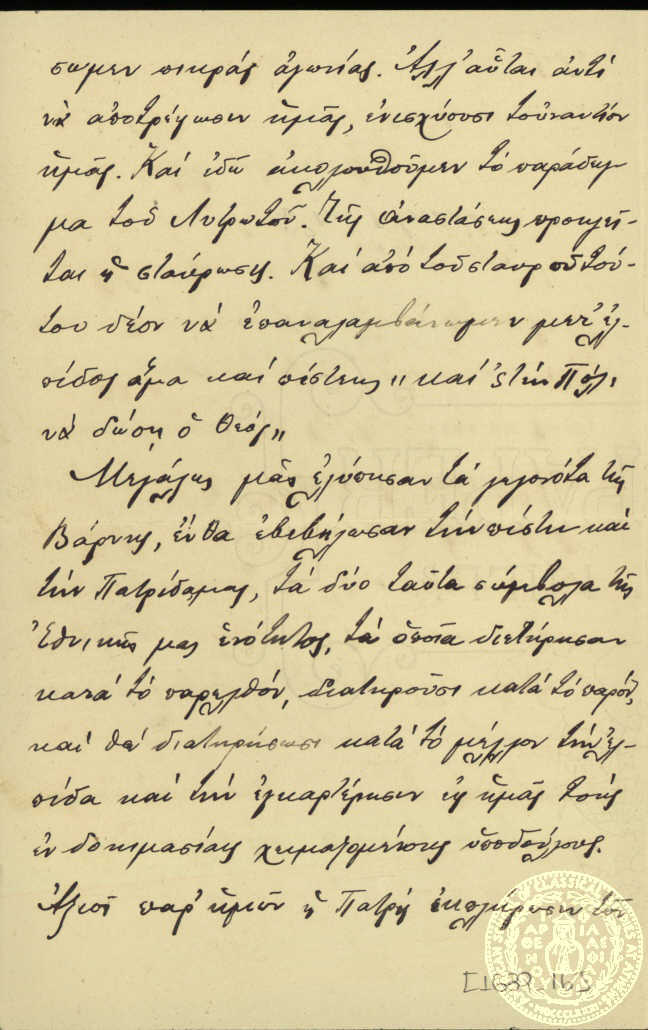 σωμεν πικράς ἀγωνίας. Ἀλλ' αὗται ἀντί
νὰ ἀποτρέψωσιν ἡμᾶς, ἐνισχύουσι τοὐναντίον
ἡμᾶς. Καί ἰδού ἀκολουθοῦμεν τό παράδειγ-
μα τοῦ Λυτρωτοῦ. Τῆς ἀναστάσεως προηγεῖ-
ται ἡ σταύρωσις. Καί ἀπό τοῦ σταυροῦ τού-
του δέον νὰ ἐπαναλαμβάνωμεν μετ' ἐλ-
πίδος ἅμα καί πίστεως „καί 'ς τήν Πόλι
νὰ δώσῃ ὁ Θεός„
Μεγάλως μᾶς ἐλύπησαν τά γεγονότα τῆς
Βάρνης, ἔνθα ἐβεβήλωσαν τήν πίστιν καί
τήν Πατρίδα μας, τά δύο ταῦτα σύμβολα τῆς
Ἐθνικῆς μας ἑνότητος, τά ὁποῖα διετήρησαν
κατά τό παρελθόν, διατηροῦσι κατά τό παρόν,
καί θά διατηρήσωσι κατά τό μέλλον τήν ἐλ-
πίδα καί τήν ἐγκαρτέρησιν εἰς ἡμᾶς τούς
ἐν δοκιμασίαις χειμαζομένους ὑποδούλους.
Ἀξιοῖ παρ' ἡμῶν ἡ Πατρίς ἐκπλήρωσιν τῶν
ΑΡ ΙΛ
ΘΕ ΑΕ